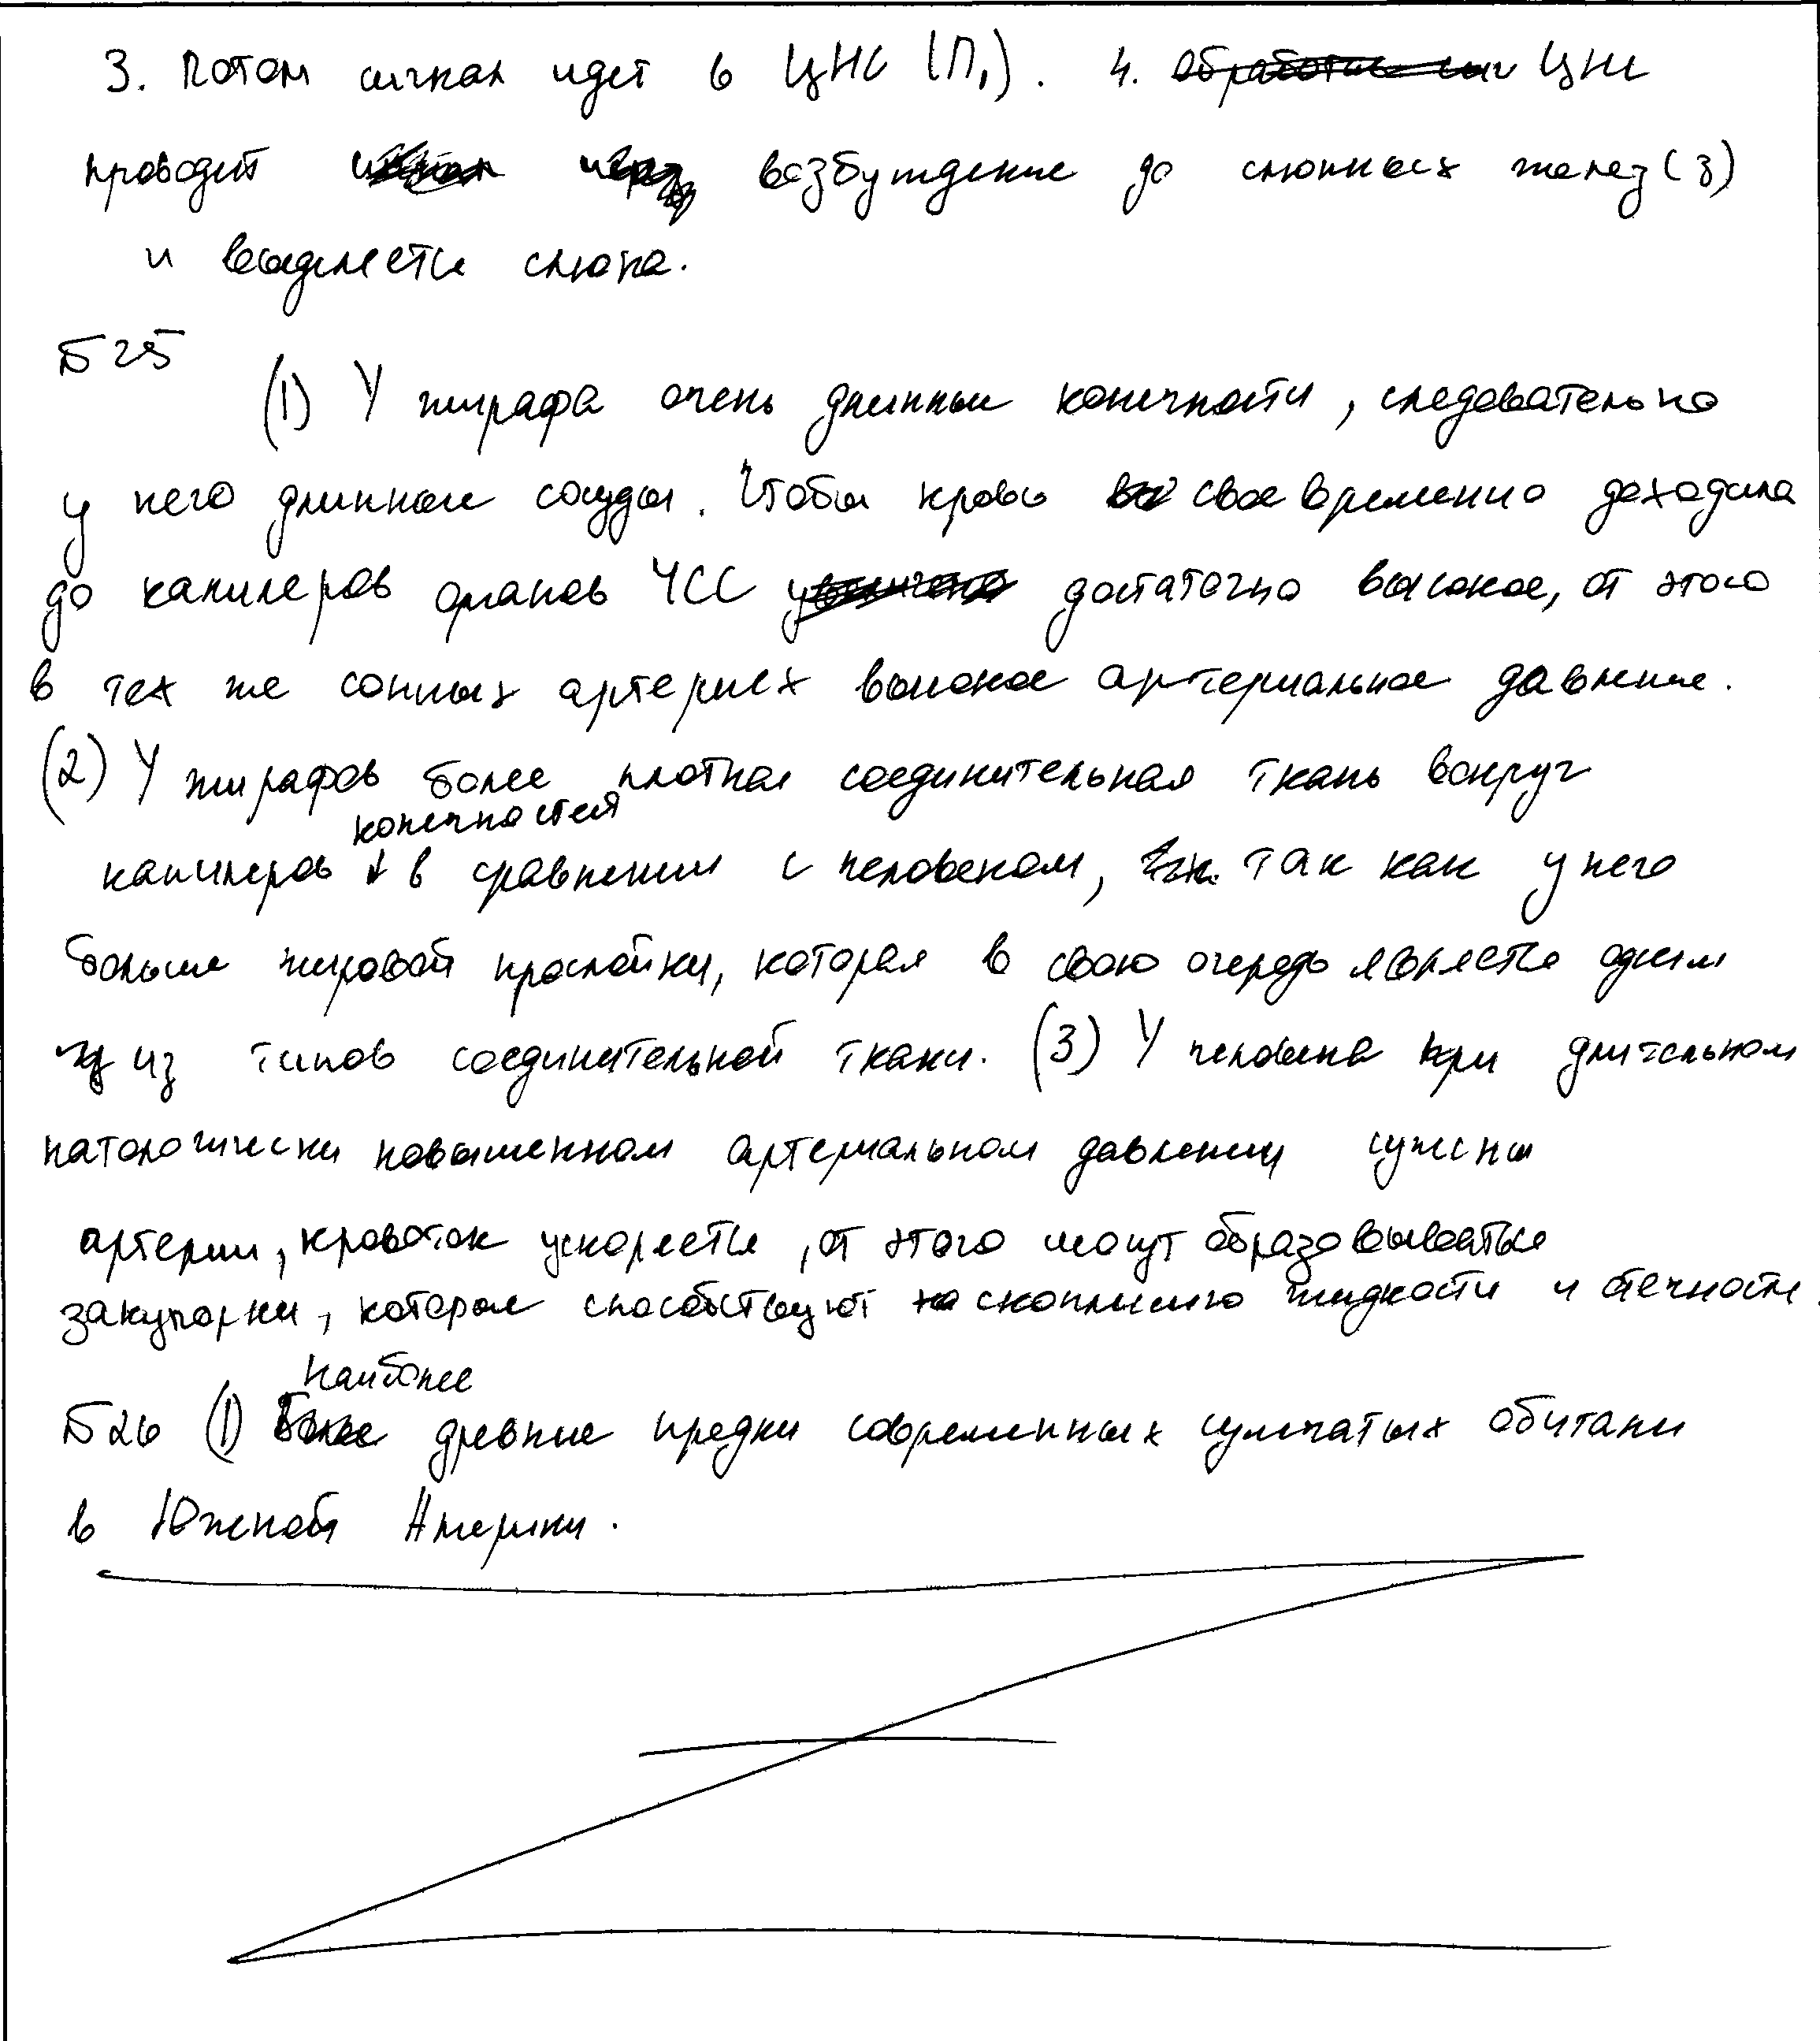 3. Потом сигнал идет в ЦНС (П₁). 4. ЦНС
проводит возбуждение до слюнных желез (3)
и выделяется слюна.
Б25
(1) У жирафа очень длинные конечности, следовательно
у него длинные сосуды. Чтобы кровь своевременно доходила
до капиляров органов ЧСС достаточно высокое, от этого
в тех же сонных артериях высокое артериальное давление.
(2) У жирафов более плотная соединительная ткань вокруг
конечностей
капиляров в сравнении с человеком, так как у него
больше жировой прослойки, которая в свою очередь является одним
из типов соединительной ткани. (3) У человека при длительном
патологически повышенном артериальном давлении сужены
артерии, кровоток ускоряется, от этого могут образовываться
закупорки, которые способствуют скоплению жидкости и отечности.
Наиболее
Б26 (1) древние предки современных сумчатых обитали
в Южной Америки.